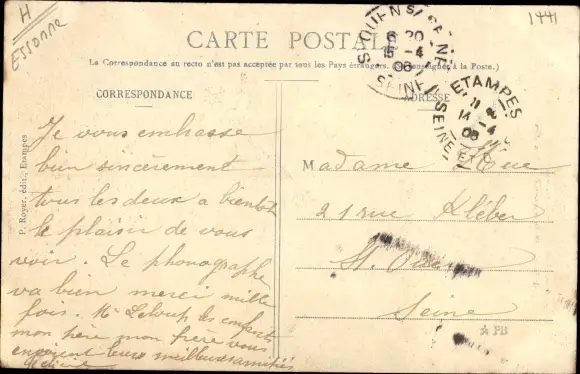 H
Essonne
1441
CARTE POSTALE
La Correspondance au recto n'est pas acceptée par tous les Pays étrangers. (Se renseigner à la Poste.)
CORRESPONDANCE
ADRESSE
ST OUEN S/ SEINE
6 20
15 -4
06
SEINE
ETAMPES
11
14 -4
06
SEINE ET
P. Royer, édit., Etampes
Je vous embrasse
bien sincèrement
tous les deux a bientot
le plaisir de vous
voir. Le phonographe
va bien merci mille
fois. Mr Leloup les enfants
mon père mon frère vous
envoyent leurs meilleures amitiés
Madame
21 rue Kléber
St. Ouen
Seine
PB